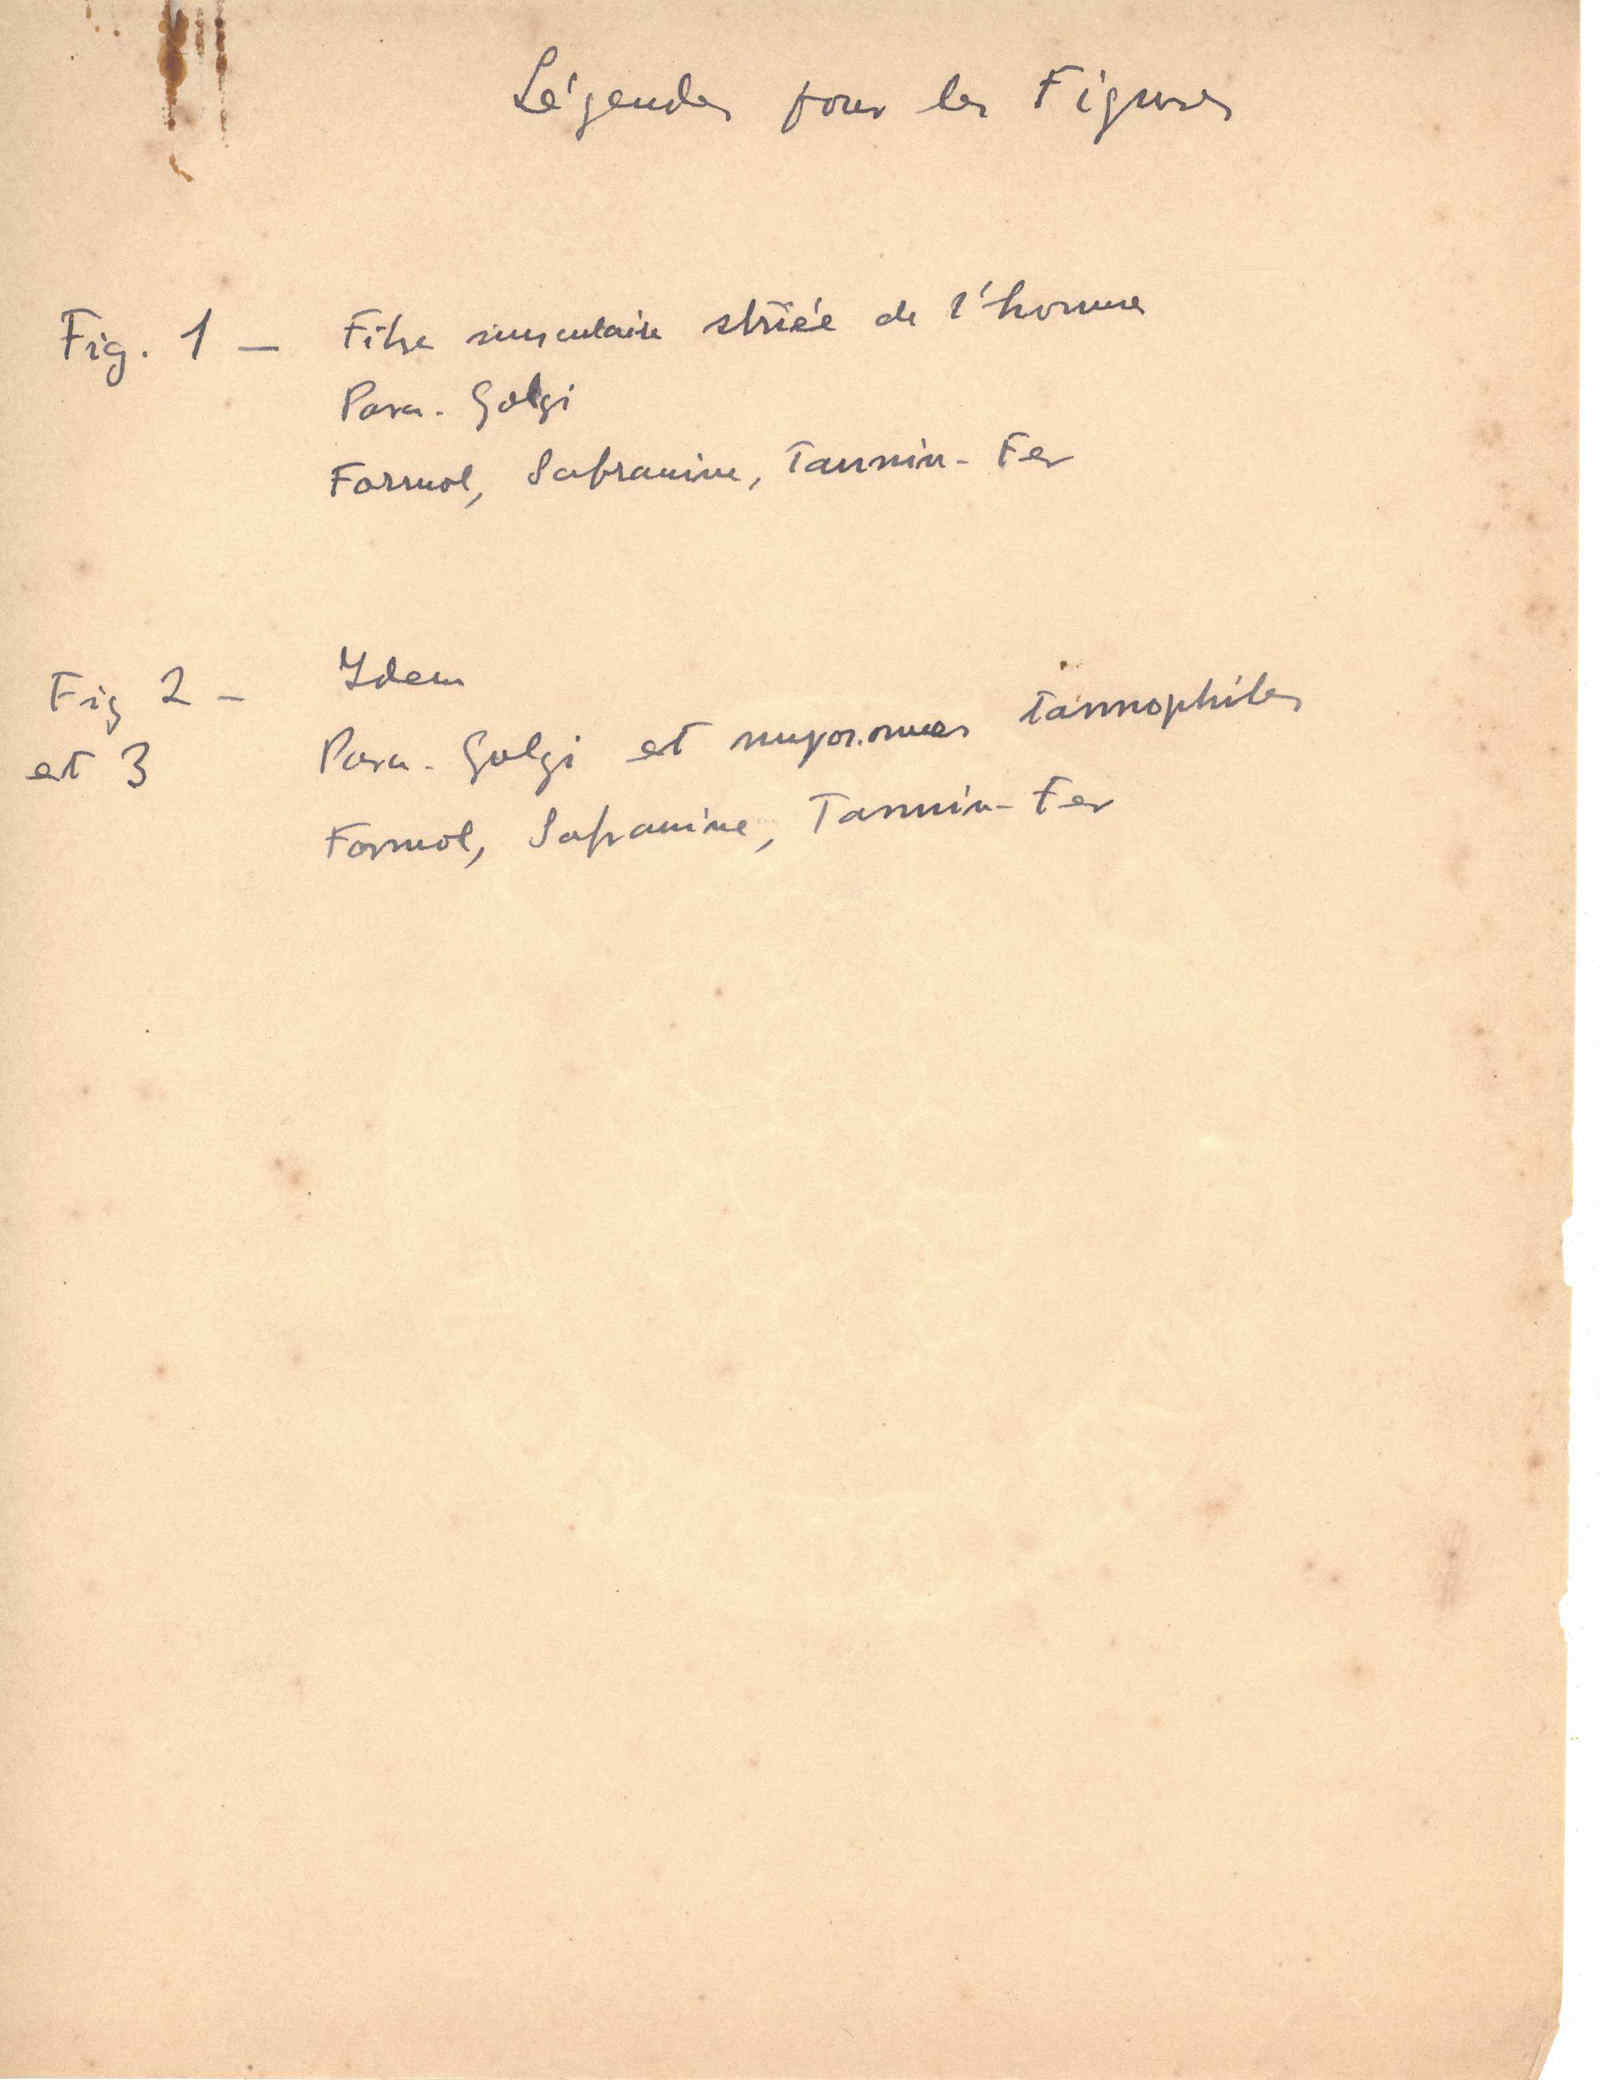 Légendes pour les Figures
Fig. 1 — Fibre musculaire striée de l'homme
Para-Golgi
Formol, Safranine, Tannin-Fer
Fig 2 — Idem
et 3 Para-Golgi et myosomes tannophiles
Formol, Safranine, Tannin-Fer